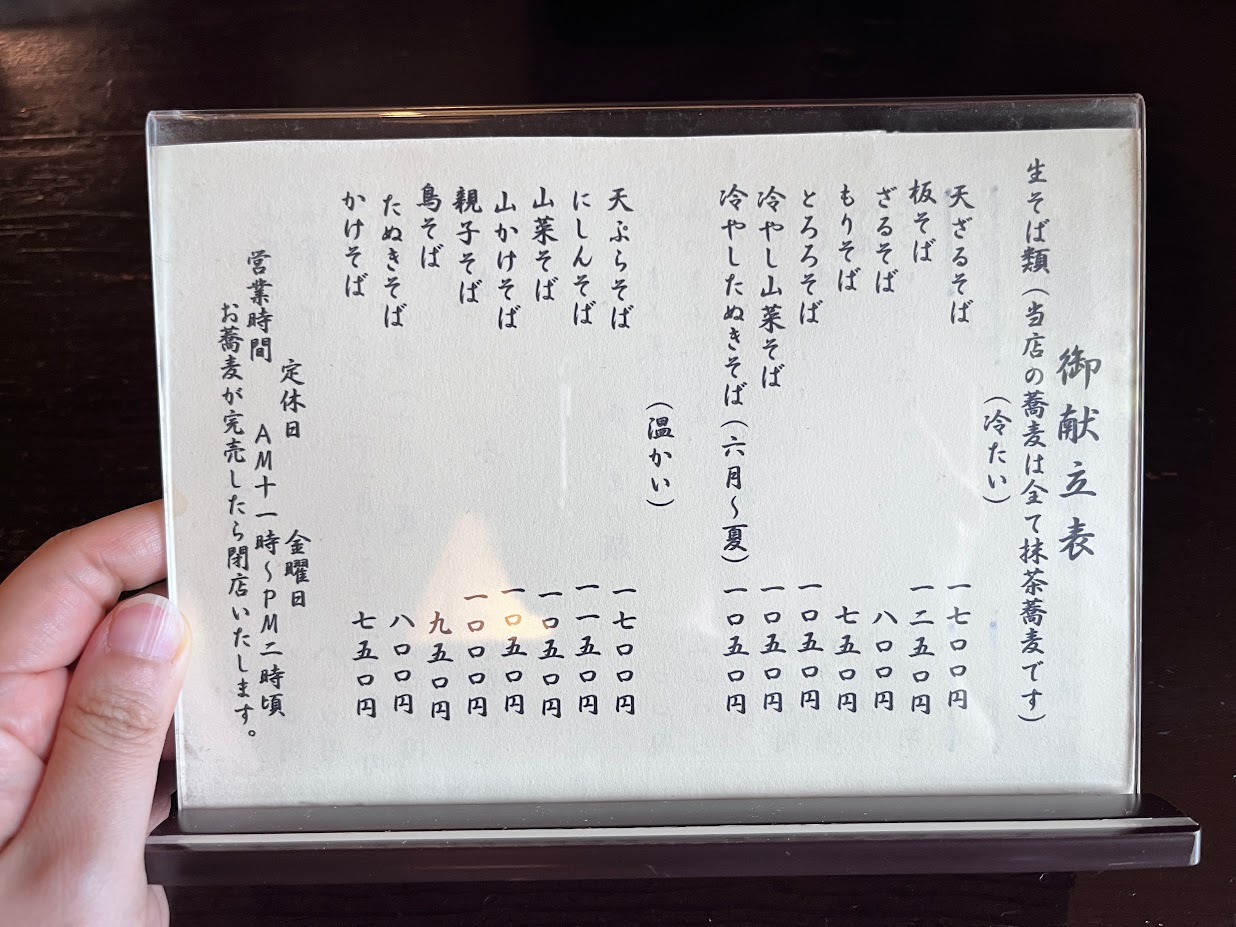 御献立表
生そば類（当店の蕎麦は全て抹茶蕎麦です）
（冷たい）
天ざるそば 一七〇〇円
板そば 一二五〇円
ざるそば 八〇〇円
もりそば 七五〇円
とろろそば 一〇五〇円
冷やし山菜そば 一〇五〇円
冷やしたぬきそば（六月～夏） 一〇五〇円
（温かい）
天ぷらそば 一七〇〇円
にしんそば 一一五〇円
山菜そば 一〇五〇円
山かけそば 一〇五〇円
親子そば 一〇〇〇円
鳥そば 九五〇円
たぬきそば 八〇〇円
かけそば 七五〇円
定休日 金曜日
営業時間 AM十一時～PM二時頃
お蕎麦が完売したら閉店いたします。